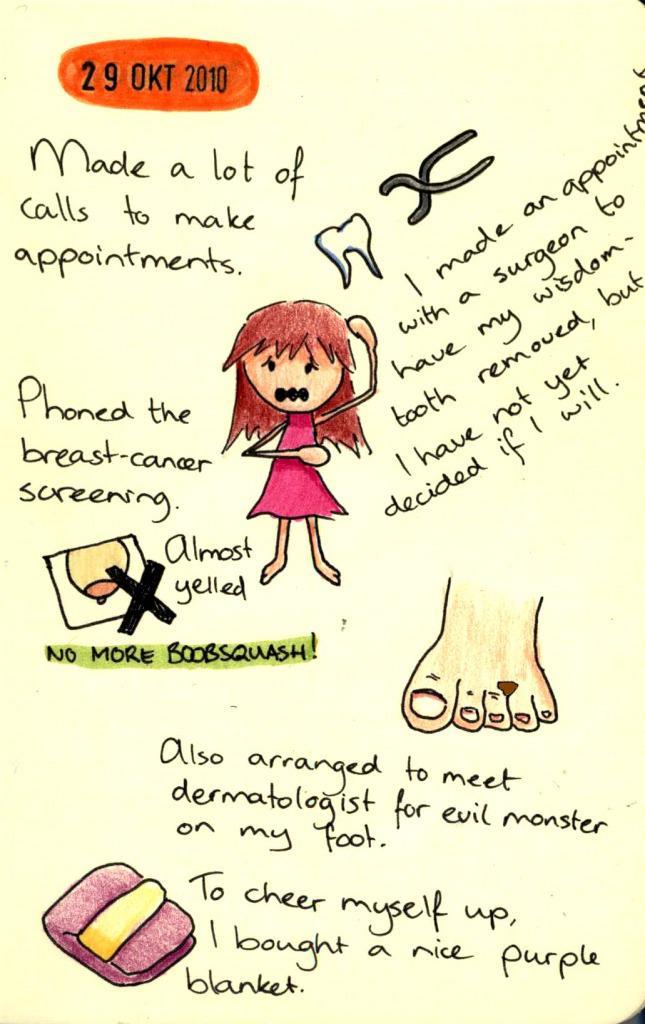 29 OKT 2010
Made a lot of
calls to make
appointments.
I made an appointment
with a surgeon to
have my wisdom-
tooth removed, but
I have not yet
decided if I will.
Phoned the
breast-cancer
screening.
Almost
yelled
NO MORE BOOBSQUASH!
Also arranged to meet
dermatologist for evil monster
on my foot.
To cheer myself up,
I bought a nice purple
blanket.